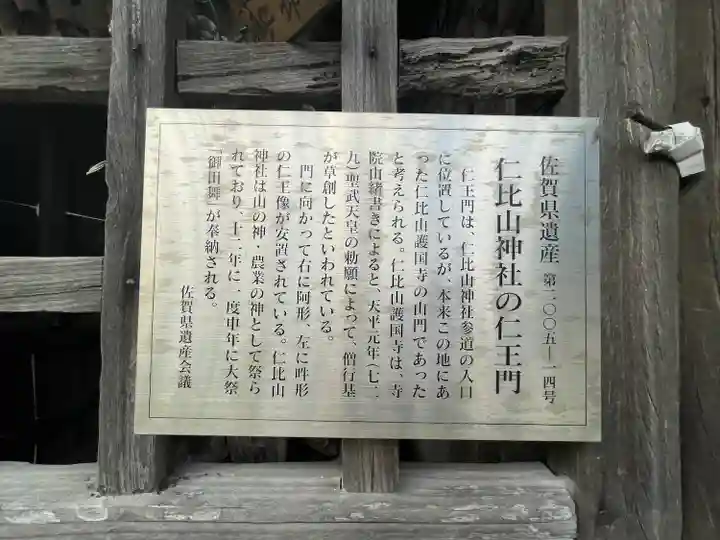 佐賀県遺産 第二〇〇五―一四号
仁比山神社の仁王門
仁王門は、仁比山神社参道の入口
に位置しているが、本来この地にあ
った仁比山護国寺の山門であった
と考えられる。仁比山護国寺は、寺
院山緒書きによると、天平元年(七二
九)聖武天皇の勅願によって、僧行基
が草創したといわれている。
門に向かって右に阿形、左に吽形
の仁王像が安置されている。仁比山
神社は山の神・農業の神として祭ら
れており、十二年に一度申年に大祭
「御田舞」が奉納される。
佐賀県遺産会議